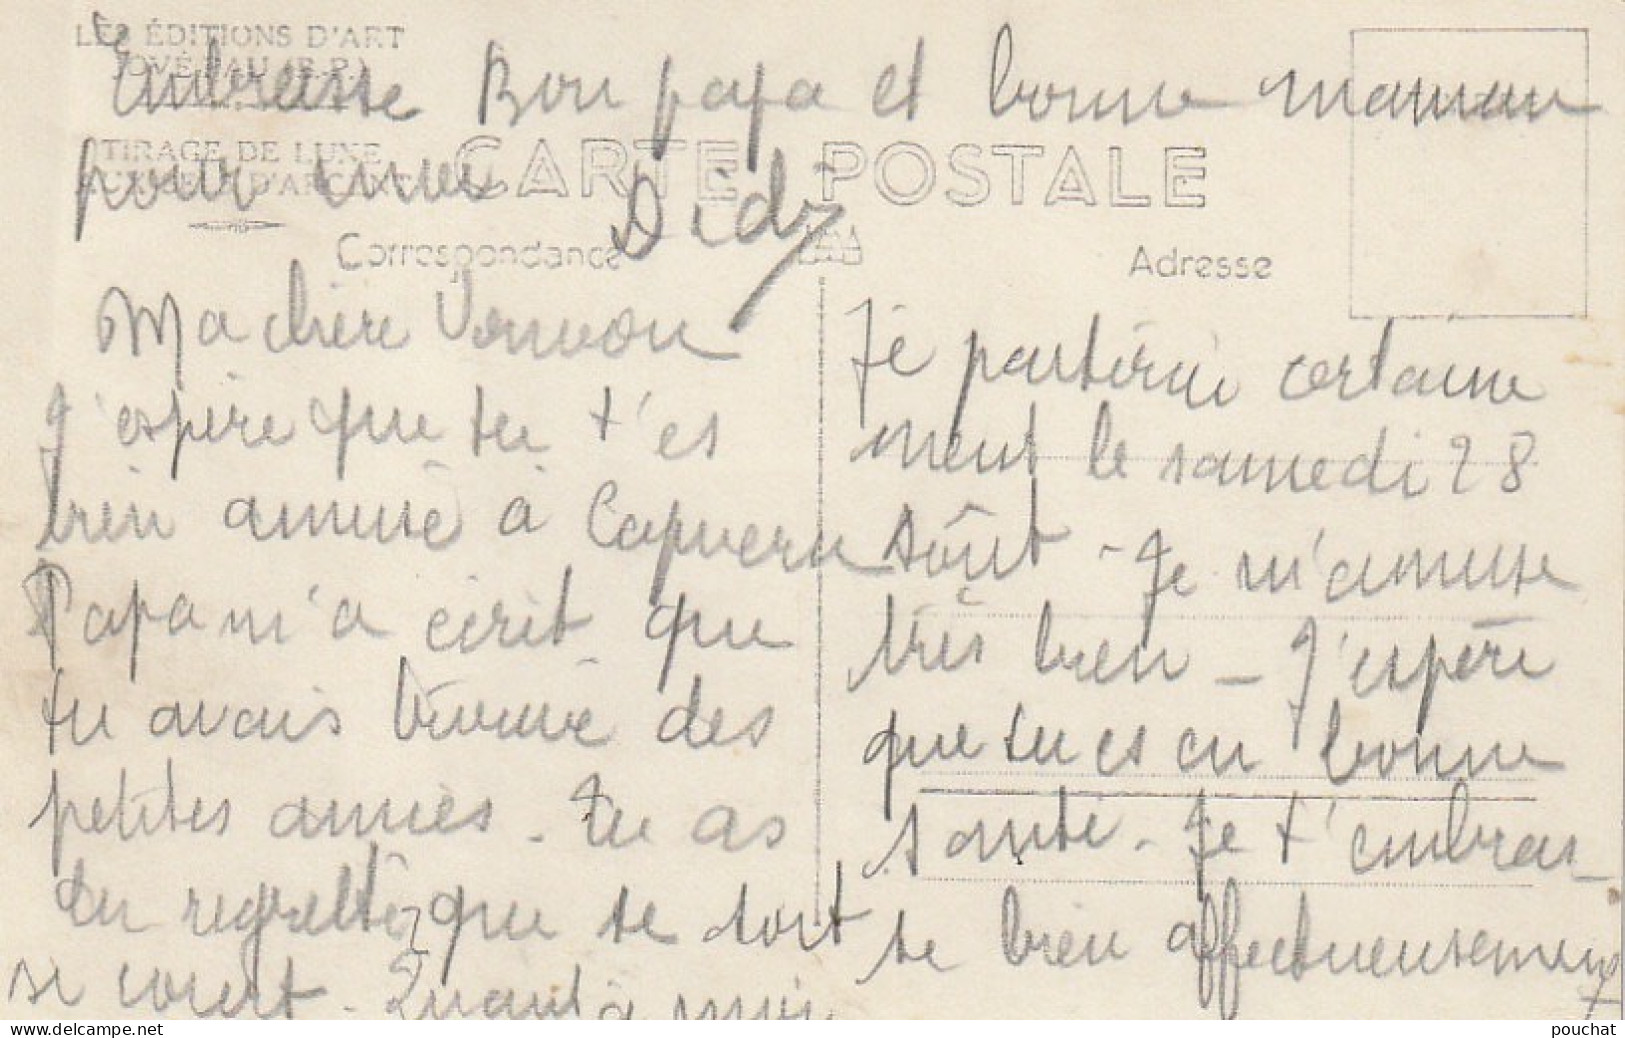 LES ÉDITIONS D'ART
JOVÉ PAU (B.-P.)
TIRAGE DE LUXE
D'ARGENT
CARTE POSTALE
Correspondance
Adresse
Embrasse Bon papa et bonne maman
pour moi Didy
Ma chère
J'espère que tu t'es
bien amusé à Capvern
Papa m'a écrit que
tu avais trouvé des
petites amies. Tu as
du regretter que se soit
si court. Quant à moi
Je partirai certaine
ment le samedi 28
Aôut - Je m'amuse
très bien - J'espère
que tu es en bonne
santé - Je t'embras-
se bien affectueusement
delcampe.net
pouchat